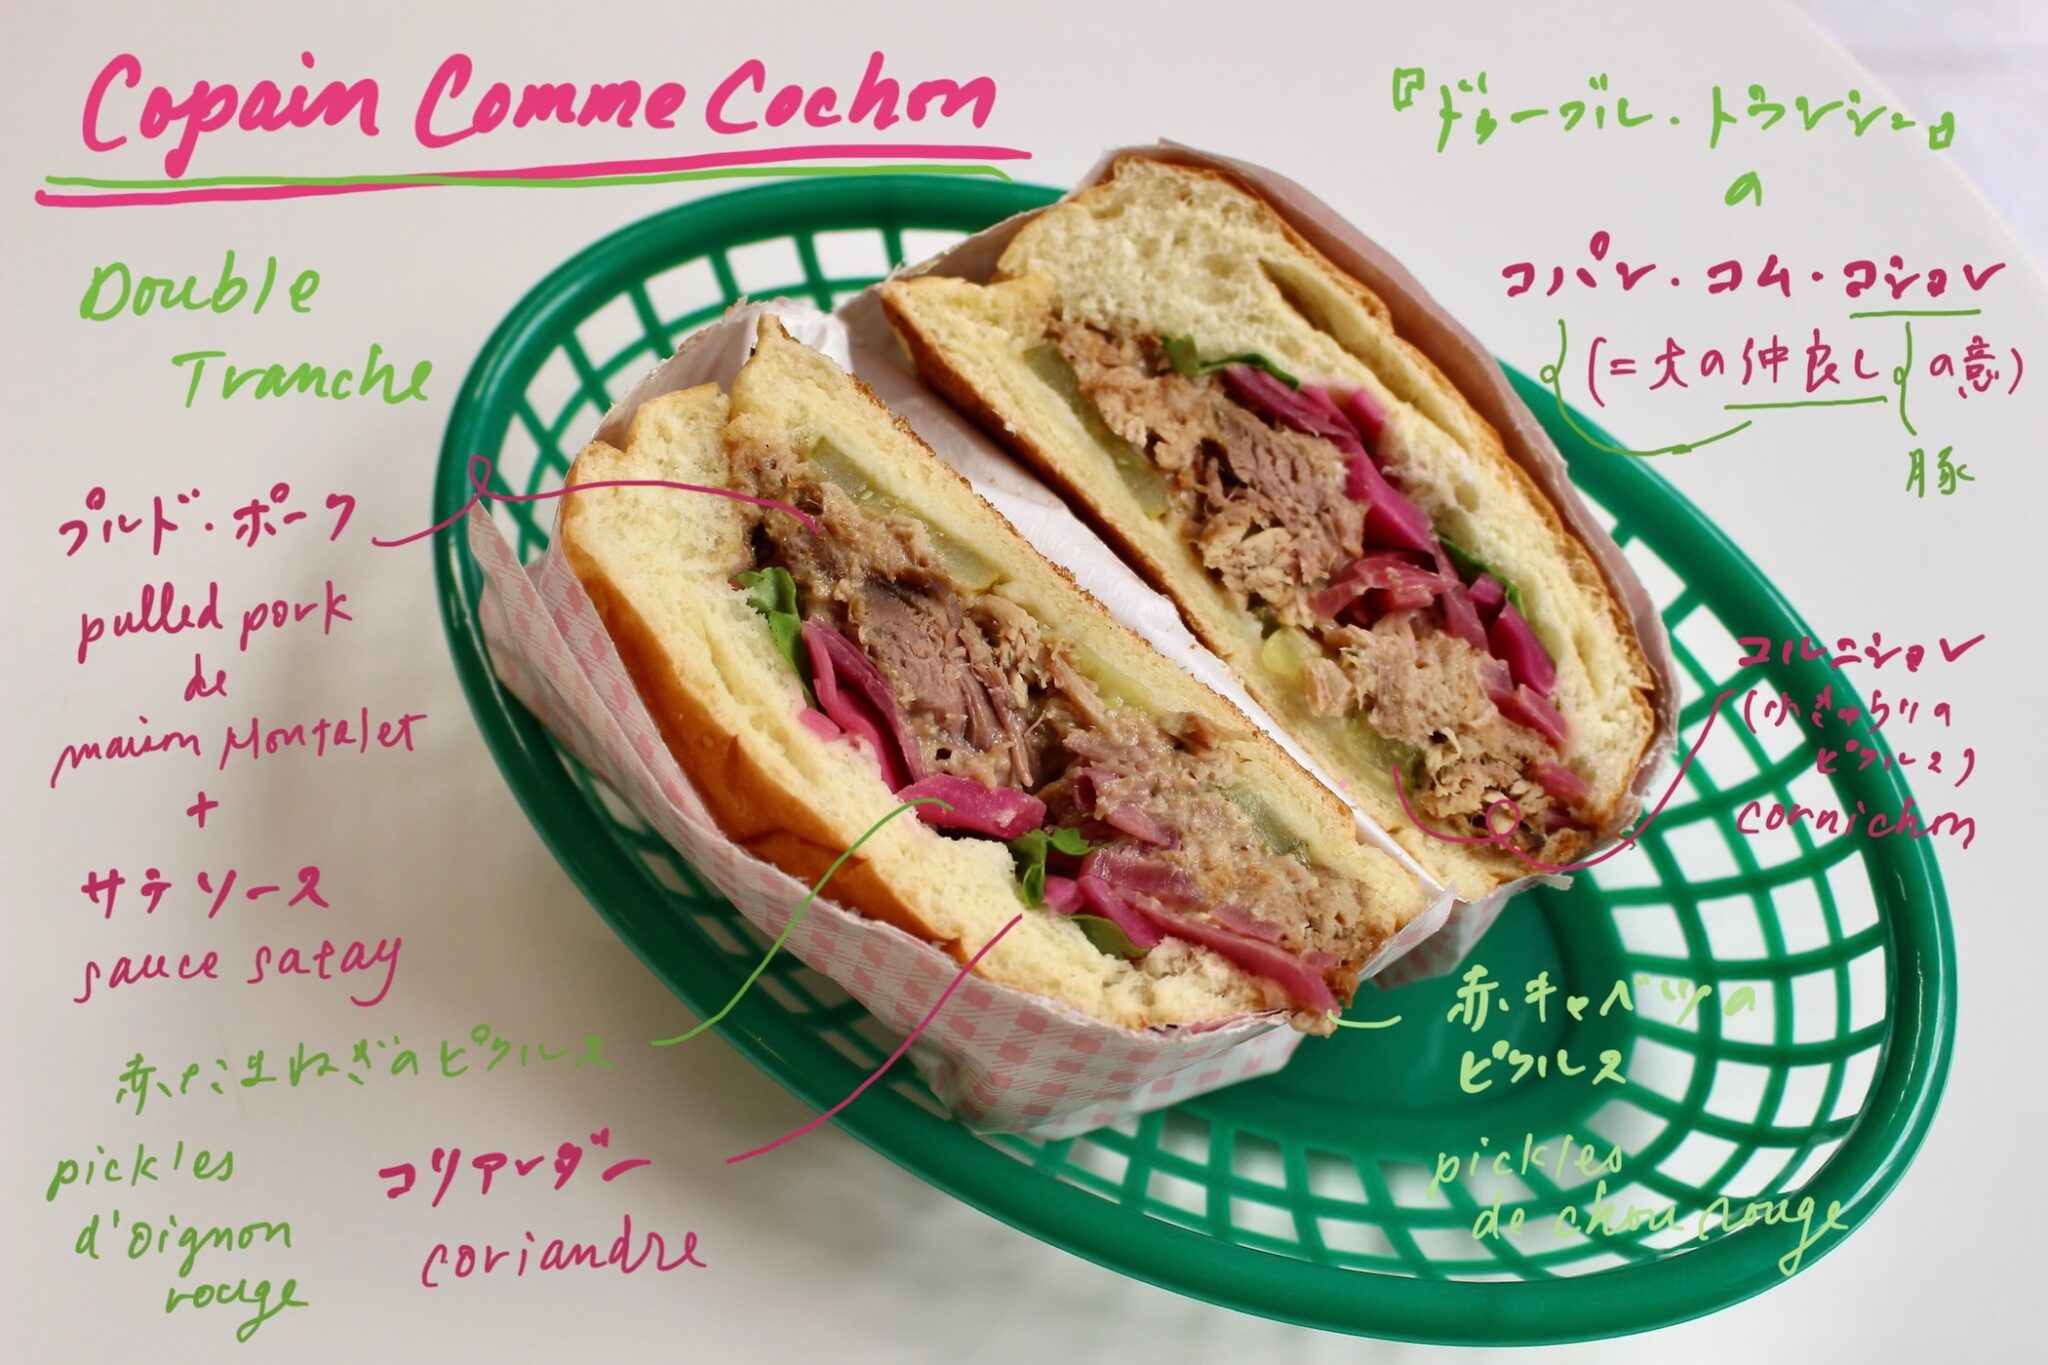 Copain Comme Cochon
Double
Tranche
プルド・ポーク
pulled pork
de
maison Montalet
+
サテソース
sauce satay
赤たまねぎのピクルス
pickles
d'oignon
rouge
コリアンダー
coriandre
『ドゥーブル・トランシュ』
の
コパン・コム・コション
(=大の仲良し の意)
豚
コルニション
(小きゅうりの
ピクルス)
cornichon
赤キャベツの
ピクルス
pickles
de chou rouge